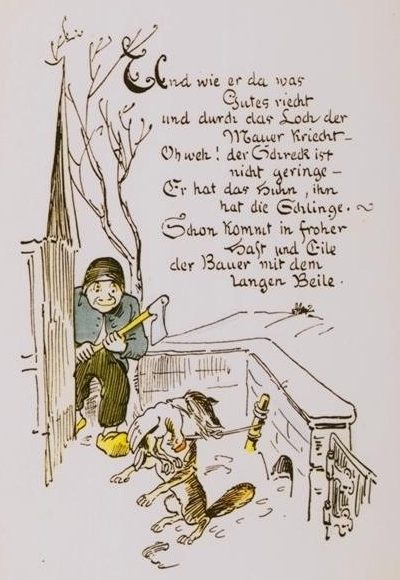 Und wie er da was
Gutes riecht
und durch das Loch der
Mauer kriecht –
Oh weh! der Schreck ist
nicht geringe –
Er hat das Huhn, ihn
hat die Schlinge. ~
Schon kommt in froher
Hast und Eile
der Bauer mit dem
langen Beile.